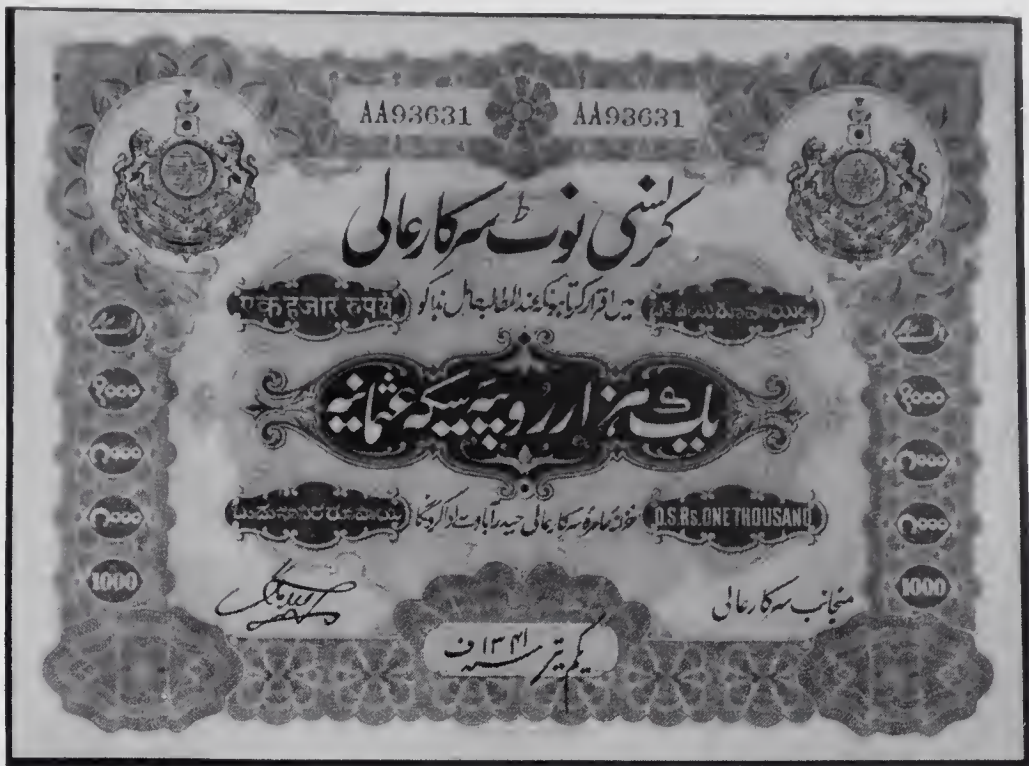 AA93631 AA93631
کرنسی نوٹ سرکار عالی
एक हजार रुपये میں اقرار کرتا ہوں کہ عندالطلب حامل ہذا کو
یک ہزار روپیہ سکہ عثمانیہ
خزانہ عامرہ سرکار عالی حیدرآباد سے ادا کرونگا O.S.Rs.ONE THOUSAND
१००० १०००
౧౦౦౦ ౧౦౦౦
೧೦೦೦ ೧೦೦೦
1000 1000
منجانب سرکار عالی
یکم تیر سنہ ۱۳۴۱ ف